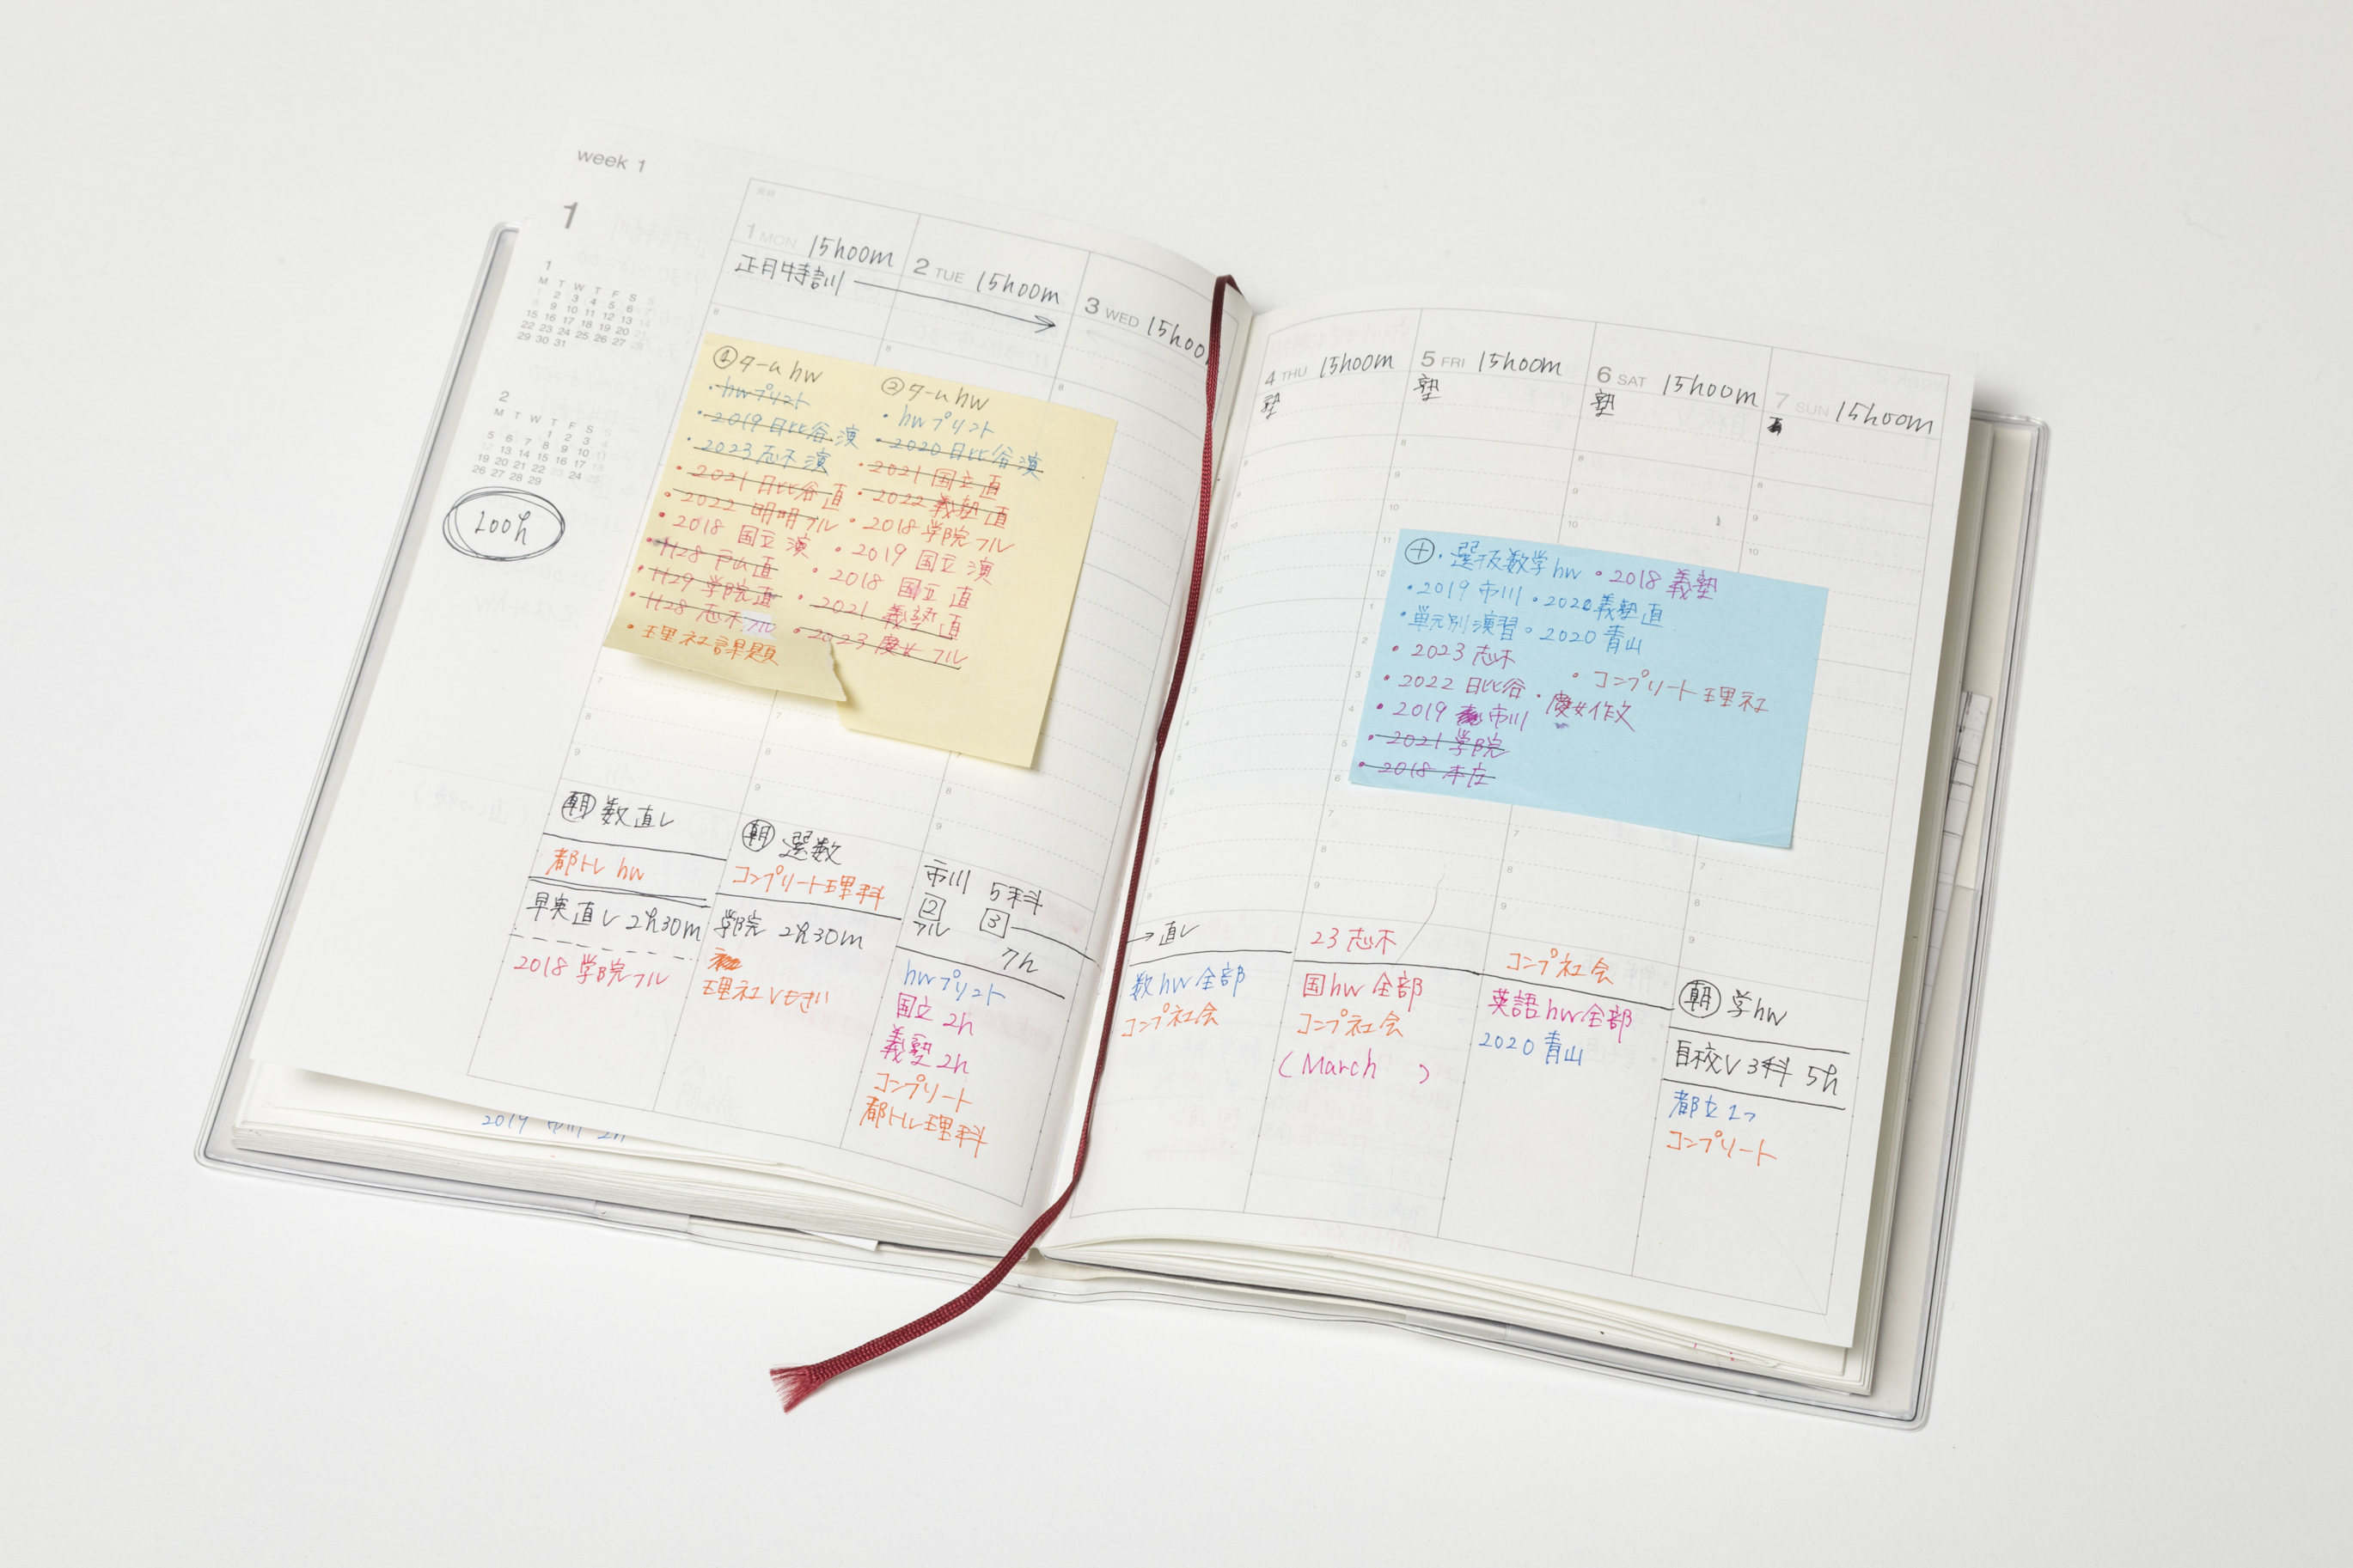 week 1
1
1
M T W T F S S
1 2 3 4 5 6
8 9 10 11 12 13 14
15 16 17 18 19 20 21
22 23 24 25 26 27 28
29 30 31
2
M T W T F S
1 2 3
5 6 7 8 9 10
12 13 14 15 16 17 18
19 20 21 22 23 24
26 27 28 29
100h
元日
1 MON 15h00m
正月特訓
2 TUE 15h00m
3 WED 15h00
① hw
・hwプリント
・2019 日比谷 演
・2023 志木 演
・2021 日比谷 直
・2022 明明 フル
・2018 国立 演
・H28 戸山 直
・H29 学院 直
・H28 志木 フル
・理社課題
② hw
・hwプリント
・2020 日比谷 演
・2021 国立 直
・2022 義塾 直
・2018 学院 フル
・2019 国立 演
・2018 国立 直
・2021 義塾 直
・2023 慶女 フル
朝 数直し
都トレ hw
早実直し 2h30m
2018 学院フル
朝 選数
コンプリート理科
学院 2h30m
理社
市川 5科
2 フル
3
7h
hwプリント
国立 2h
義塾 2h
コンプリート
都トレ理科
2019 市川 2h
4 THU 15h00m
塾
5 FRI 15h00m
塾
6 SAT 15h00m
塾
7 SUN 15h00m
＋・選抜数学hw ・2018 義塾
・2019 市川 ・2020 義塾直
・単元別演習 ・2020 青山
・2023 志木
・コンプリート理社
・2022 日比谷 ・慶女作文
・2019 市川
・2021 学院
・2018 本庄
→直し
数hw全部
コンプ社会
23 志木
国hw 全部
コンプ社会
(March )
コンプ社会
英語hw全部
2020 青山
朝 学hw
自校V3科 5h
都立1つ
コンプリート